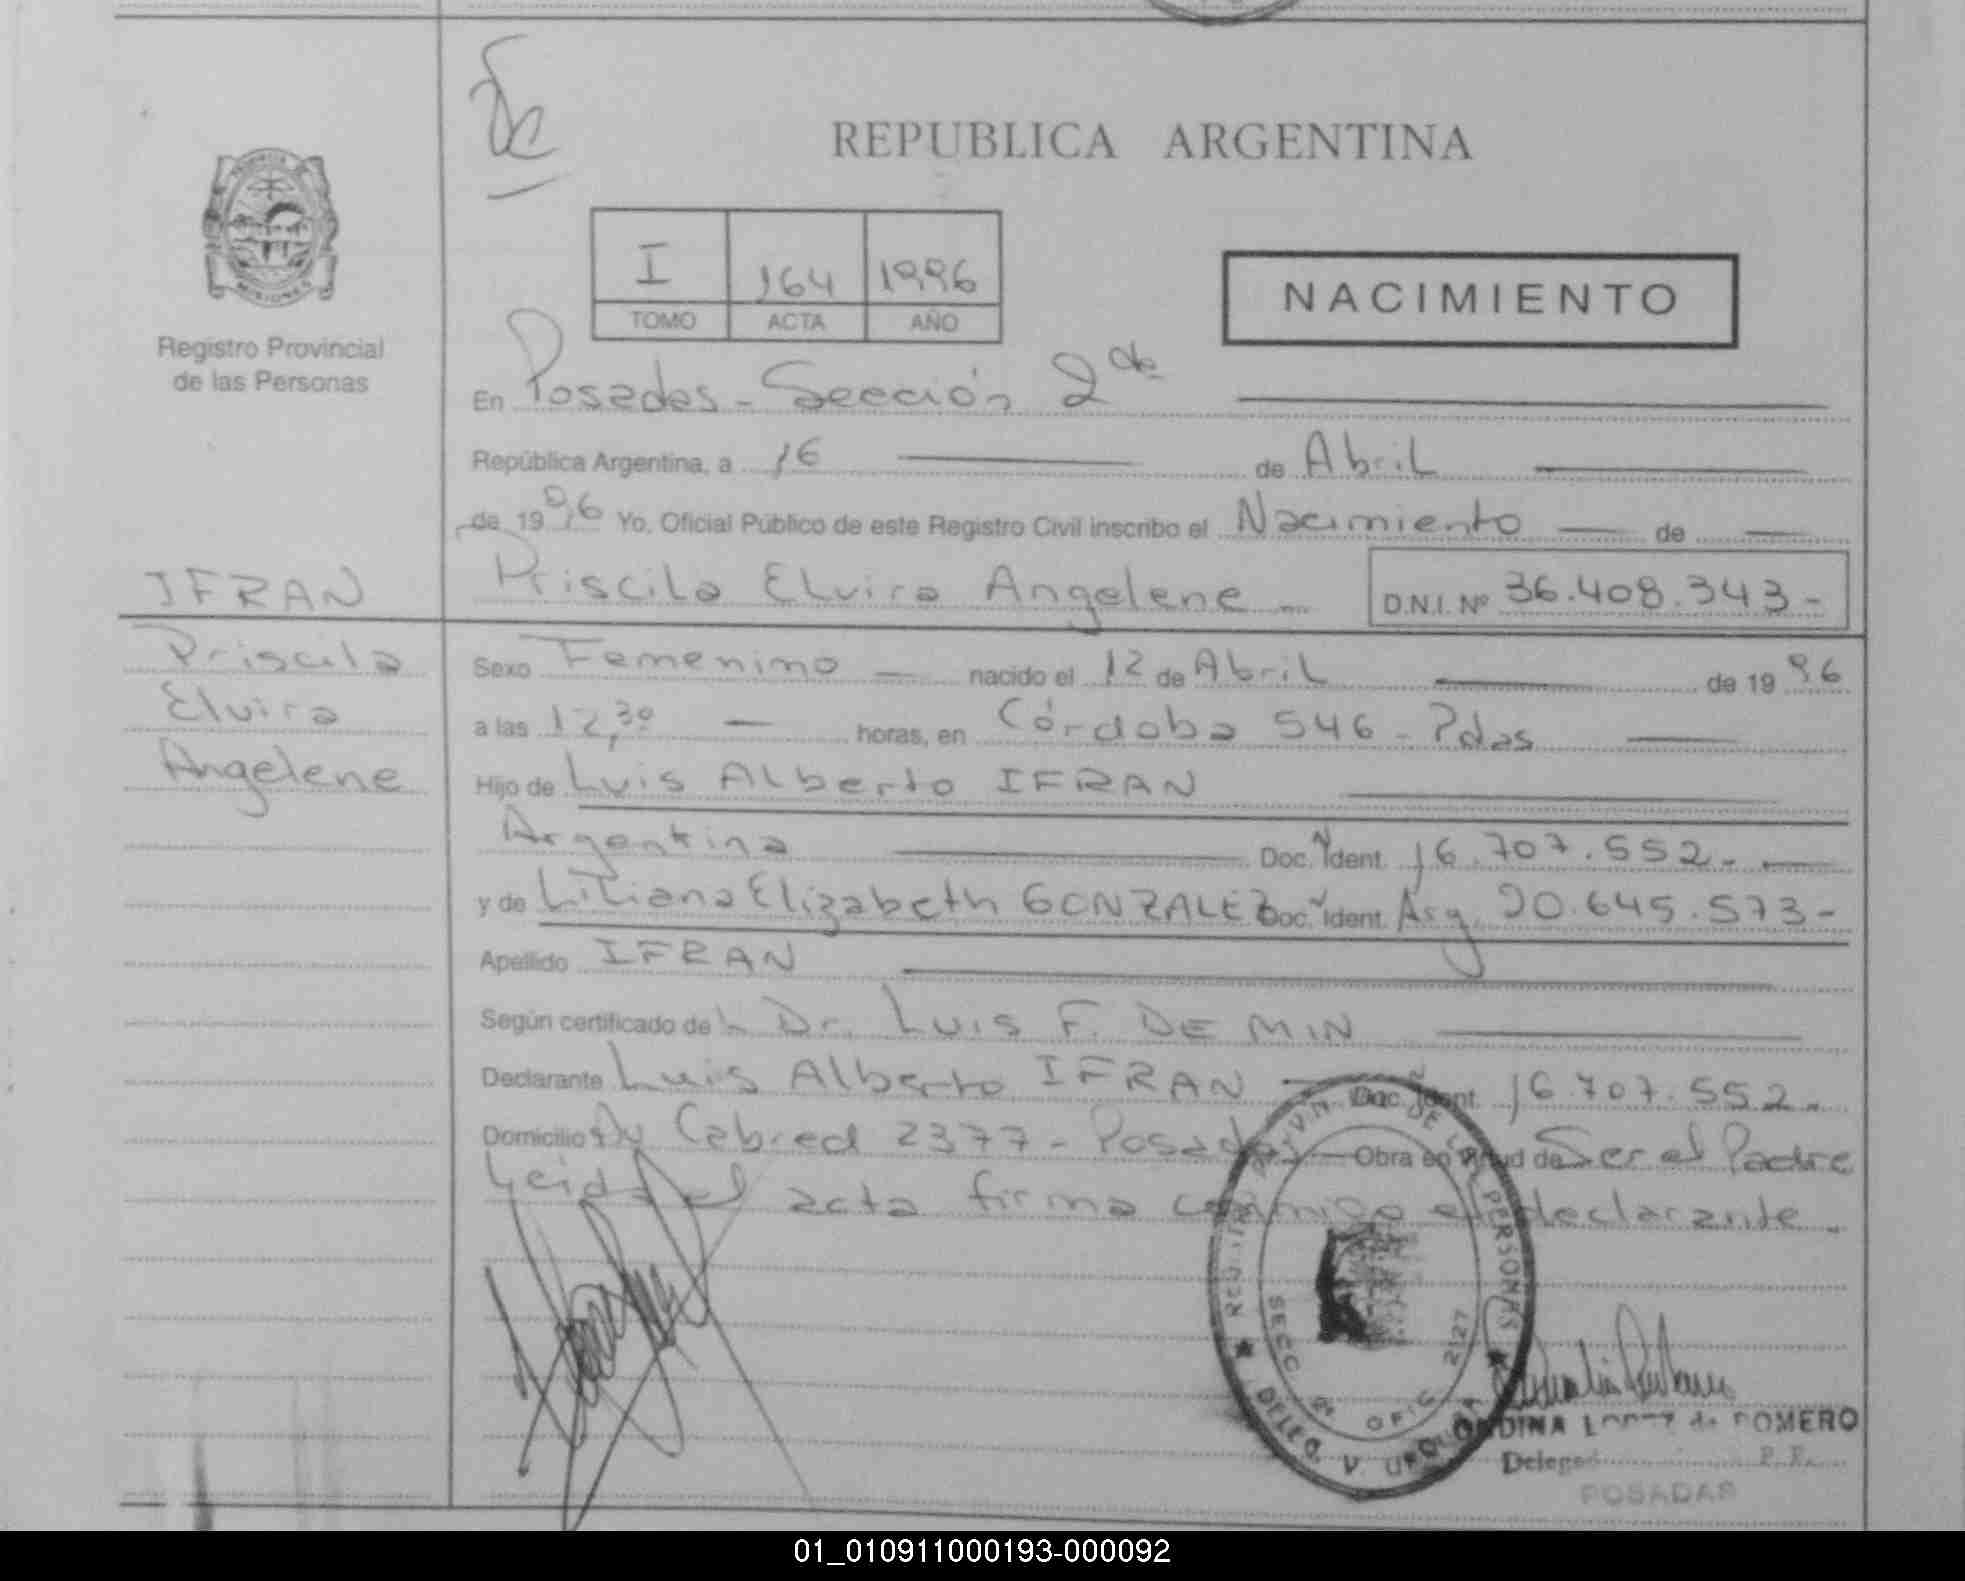 REPUBLICA ARGENTINA
I 164 1996
TOMO ACTA AÑO
NACIMIENTO
MISIONES
Registro Provincial
de las Personas
En Posadas - Sección 2da
República Argentina, a 16 de Abril
de 1996 Yo, Oficial Público de este Registro Civil inscribo el Nacimiento de
IFRAN
Priscila Elvira Angelene D.N.I. Nº 36.408.343-
Priscila
Elvira
Angelene
Sexo Femenino nacido el 12 de Abril de 1996
a las 12,30 horas, en Córdoba 546 - Pdas
Hijo de Luis Alberto IFRAN
Argentina Doc. Ident. 16.707.552-
y de Liliana Elizabeth GONZALEZ Doc. Ident. Arg. 20.645.573-
Apellido IFRAN
Según certificado del Dr. Luis F. DE MIN
Declarante Luis Alberto IFRAN Doc. Ident. 16.707.552-
Domicilio Av Cabred 2377 - Posadas Obra en virtud de Ser el Padre
Leida el acta firma conmigo el declarante -
DE LAS PERSONAS
SECC 2ª OFIC 2127
DELEG. V. URQUIZA
de ROMERO
POSADAS
01_010911000193-000092